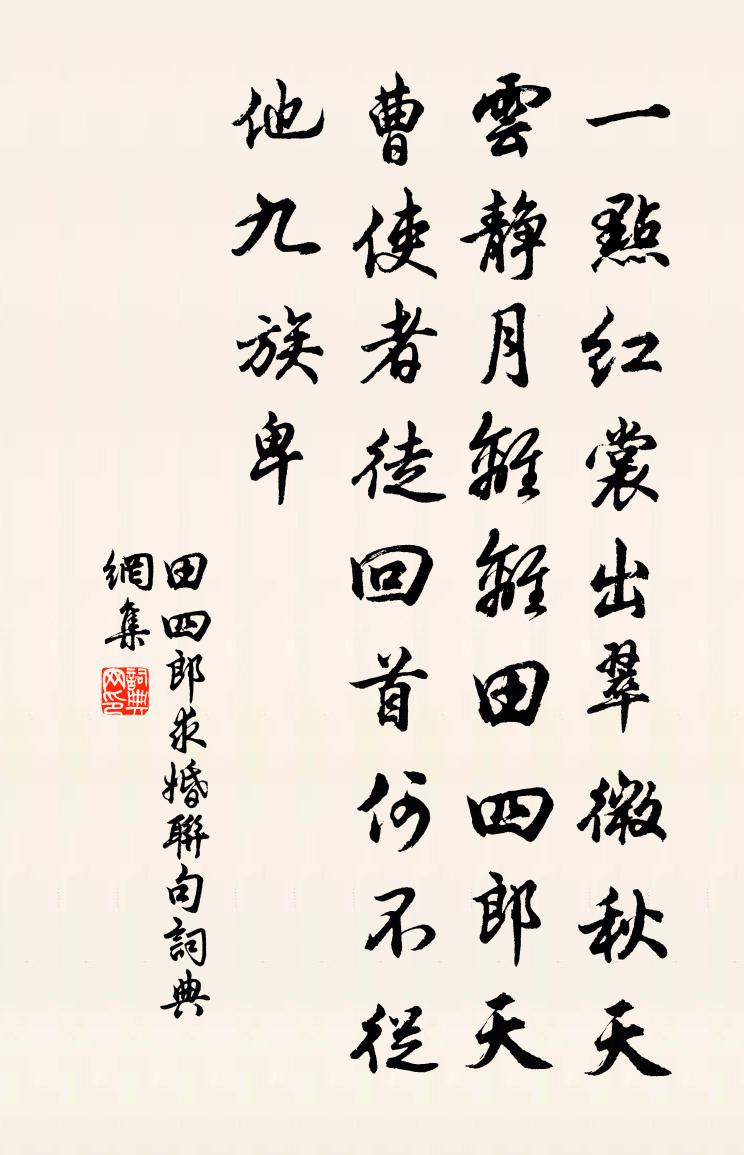 一點紅裳出翠微秋天
雲靜月離離田四郎天
曹使者徒回首何不從
他九族卑
田四郎求婚聯句詞典
網集
詞典網印